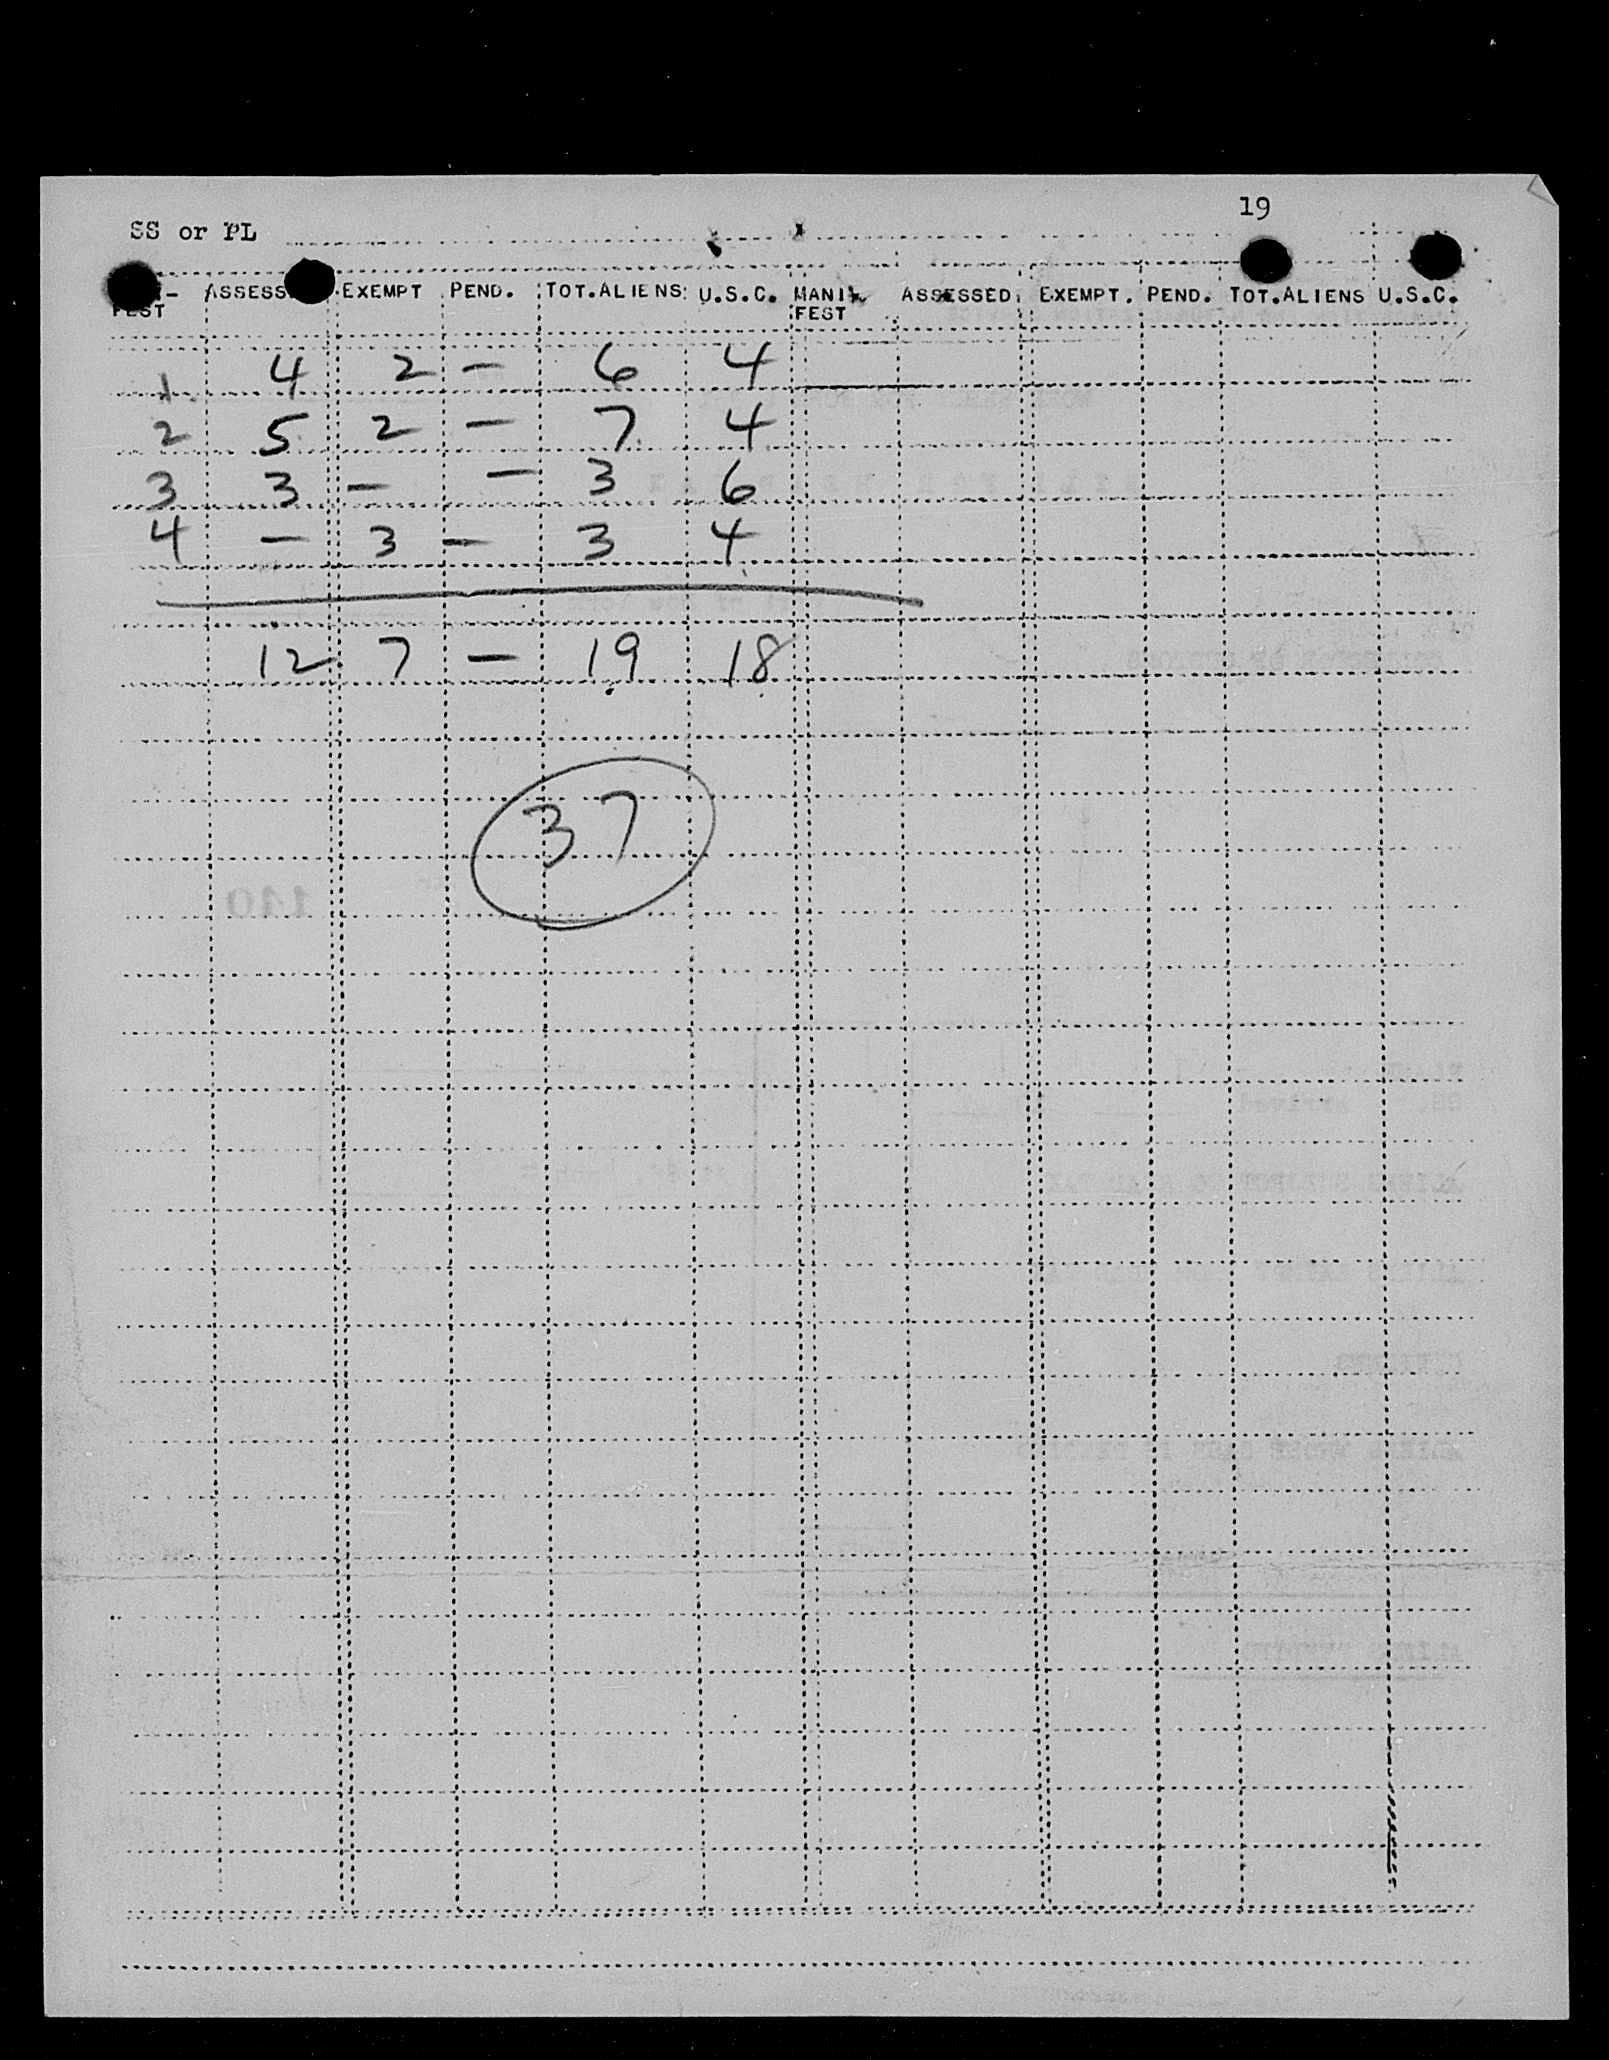 19
SS or PL
ASSESS EXEMPT PEND. TOT.ALIENS U.S.C. MANI- ASSESSED EXEMPT. PEND. TOT.ALIENS U.S.C.
FEST FEST
1 4 2 - 6 4
2 5 2 - 7 4
3 3 - - 3 6
4 - 3 - 3 4
12 7 - 19 18
37
110